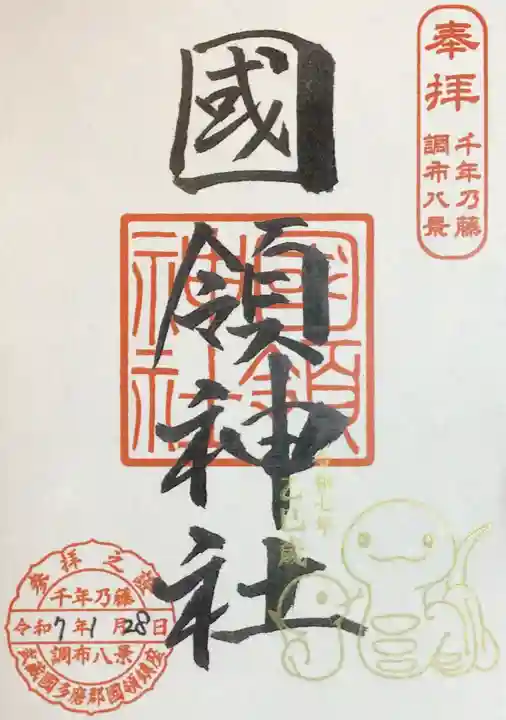 奉拝
千年乃藤
調布八景
國領神社
國領
神社
令和七年
乙巳歳
参拝之証
千年乃藤
令和7年1月28日
調布八景
武蔵國多磨郡國領鎮座